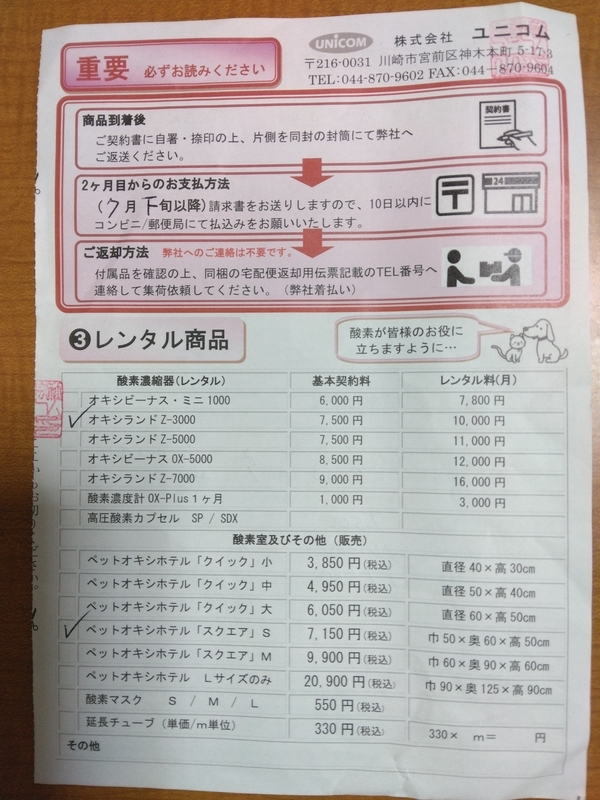 重要 必ずお読みください
UNICOM 株式会社 ユニコム
〒216-0031 川崎市宮前区神木本町 5-17-3
TEL:044-870-9602 FAX:044-870-9604
商品到着後
ご契約書に自署・捺印の上、片側を同封の封筒にて弊社へ
ご返送ください。
契約書
2ヶ月目からのお支払方法
(7月下旬以降)請求書をお送りしますので、10日以内に
コンビニ/郵便局にて払込みをお願いいたします。
〒 24
ご返却方法 弊社へのご連絡は不要です。
付属品を確認の上、同梱の宅配便返却用伝票記載のTEL番号へ
連絡して集荷依頼してください。(弊社着払い)
❸レンタル商品
酸素が皆様のお役に
立ちますように…
酸素濃縮器(レンタル) 基本契約料 レンタル料(月)
オキシビーナス・ミニ1000 6,000 円 7,800 円
✓ オキシランドZ-3000 7,500 円 10,000 円
オキシランドZ-5000 7,500 円 11,000 円
オキシビーナスOX-5000 8,500 円 12,000 円
オキシランドZ-7000 9,000 円 16,000 円
酸素濃度計OX-Plus１ヶ月 1,000 円 3,000 円
高圧酸素カプセル SP / SDX
酸素室及びその他 (販売)
ペットオキシホテル「クイック」小 3,850 円(税込) 直径 40×高 30cm
ペットオキシホテル「クイック」中 4,950 円(税込) 直径 50×高 40cm
ペットオキシホテル「クイック」大 6,050 円(税込) 直径 60×高 50cm
✓ ペットオキシホテル「スクエア」S 7,150 円(税込) 巾 50×奥 60×高 50cm
ペットオキシホテル「スクエア」M 9,900 円(税込) 巾 60×奥 90×高 60cm
ペットオキシホテル Lサイズのみ 20,900 円(税込) 巾 90×奥 125×高 90cm
酸素マスク S / M / L 550 円(税込)
延長チューブ (単価/m単位) 330 円(税込) 330× m= 円
その他